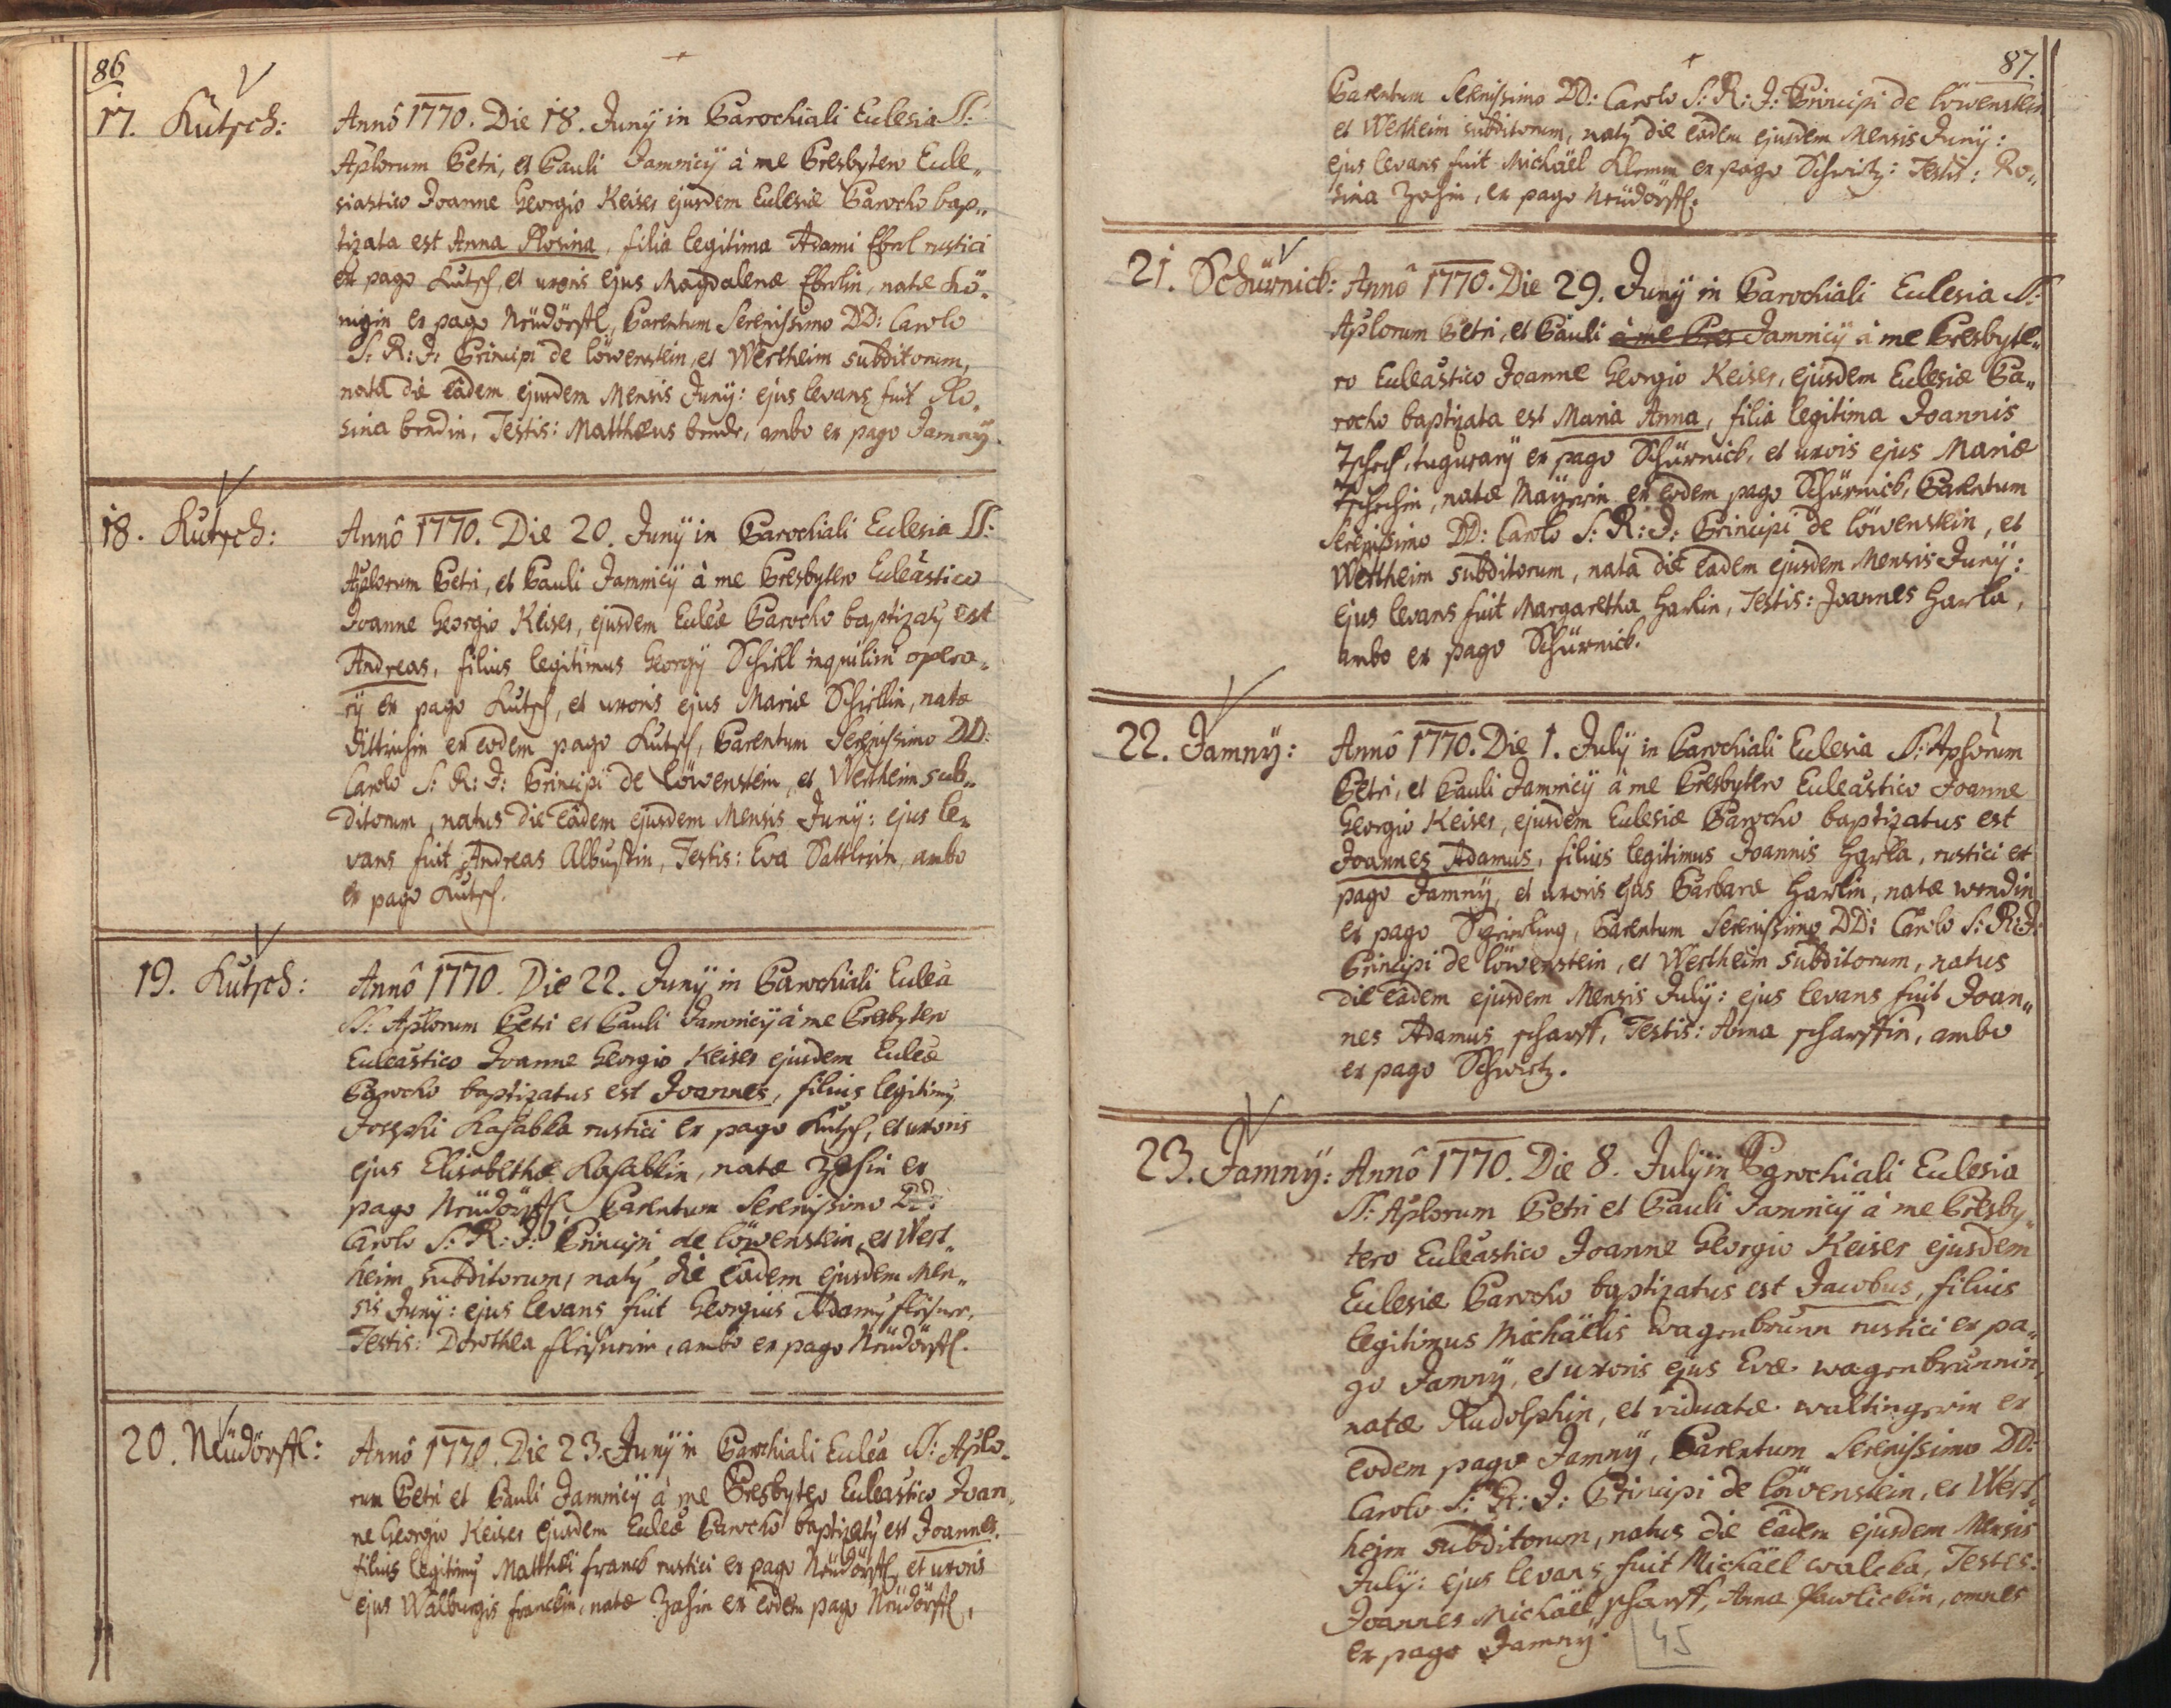 86
17. Kutsch: Annô 1770. Die 18. Junÿ in Parochiali Ecclesia SS:
Aplorum Petri, et Pauli Jamnicÿ à me Presbytero Eccle„
siastico Joanne Georgio Keiser ejusdem Ecclesiæ Parocho bap„
tizata est Anna Rosina, filia legitima Adami Eberl rustici
ex pago Kutsch, et uxoris ejus Magdalenæ Eberlin, natæ Kö„
nigin ex pago Neüdörfl, Parentum Serenissimo DD: Carolo
S: R: J: Principi de löwenstein, et Wertheim subditorum,
nata die eâdem ejusdem Mensis Junÿ: ejus levans fuit Ro„
sina bendin, Testis: Matthæus bende, ambo ex pago Jamnÿ.
18. Kutsch: Annô 1770. Die 20. Junÿ in Parochiali Ecclesia SS:
Aplorum Petri, et Pauli Jamnicÿ à me Presbytero Eccleastico
Joanne Georgio Keiser, ejusdem Eccleæ Parocho baptizatɡ est
Andreas, filius legitimus Georgÿ Schill inquilini opera„
rÿ ex pago Kutsch, et uxoris ejus Mariæ Schillin, natæ
dittrichin ex eodem pago Kutsch, Parentum Serenissimo DD:
Carolo S: R: J: Principi de Löwenstein, et Wertheim sub„
ditorum, natus die eâdem ejusdem Mensis Junÿ: ejus le„
vans fuit Andreas Albustin, Testis: Eva Sattlerin, ambo
ex pago Kutsch.
19. Kutsch: Annô 1770. Die 22. Junÿ in Parochiali Ecclea
SS: Aplorum Petri et Pauli Jamnicÿ à me Presbytero
Eccleastico Joanne Georgio Keiser ejusdem Eccleæ
Parocho baptizatus est Joannes, filius legitimɡ
Josephi Kasabka rustici ex pago Kutsch, et uxoris
ejus Elisabethæ Kasabkin, natæ Zehin ex
pago Neüdörfl, Parentum Serenissimo DD:
Carolo S: R: J: Principi de löwenstein, et Wert„
heim subditorum, natɡ die eâdem ejusdem Men„
sis Junÿ: ejus levans fuit Georgius Adamɡ fleisner,
Testis: Dorothea fleisnerin, ambo ex pago Neüdörfl.
20. Neüdörfl: Annô 1770. Die 23. Junÿ in Parochiali Ecclea SS: Aplo„
rum Petri et Pauli Jamnicÿ à me Presbytero Eccleastico Joan„
ne Georgio Keiser ejusdem Eccleæ Parocho baptizatɡ est Joannes,
filius legitimɡ Matthæi franck rustici ex pago Neüdörfl, et uxoris
ejus Walburgis franckin, natæ Zehin ex eodem pago Neüdörfl,
87.
Parentum Serenissimo DD: Carolo S: R: J: Principi de löwenstein
et Wertheim subditorum, natɡ die eâdem ejusdem Mensis Junÿ:
ejus levans fuit Michäel Klemm ex pago Schwitz: Testis: Ro„
sina Zehin, ex pago Neüdörfl.
21. Schürnick: Annô 1770. Die 29. Junÿ in Parochiali Ecclesia SS:
Aplorum Petri, et Pauli à me Pres Jamnicÿ à me Presbyte„
ro Eccleastico Joanne Georgio Keiser, ejusdem Ecclesiæ Pa„
rocho baptizata est Maria Anna, filia legitima Joannis
Tschech, tugurarÿ ex pago Schürnick, et uxoris ejus Mariæ
Tschechin, natæ Maÿerin ex eodem pago Schürnick, Parentum
Serenissimo DD: Carolo S: R: J: Principi de löwenstein, et
Wertheim subditorum, nata die eâdem ejusdem Mensis Junÿ:
ejus levans fuit Margaretha Harlin, Testis: Joannes Harla,
ambo ex pago Schürnick.
22. Jamnÿ: Annô 1770. Die 1. Julÿ in Parochiali Ecclesia SS: Aplorum
Petri, et Pauli Jamnicÿ à me Presbytero Eccleastico Joanne
Georgio Keiser, ejusdem Ecclesiæ Parocho baptizatus est
Joannes Adamus, filius legitimus Joannis Harla, rustici ex
pago Jamnÿ, et uxoris ejus Barbaræ Harlin, natæ wendin
ex pago, Parentum Serenissimo DD: Carolo S: R: J:
Principi de löwenstein, et Wertheim subditorum, natus
die eâdem ejusdem Mensis Julÿ: ejus levans fuit Joan„
nes Adamus scharff, Testis: Anna scharffin, ambo
ex pago Schwitz.
23. Jamnÿ: Annô 1770. Die 8. Julÿ in Parochiali Ecclesia
SS: Aplorum Petri et Pauli Jamnicÿ à me Presby„
tero Eccleastico Joanne Georgio Keiser ejusdem
Ecclesiæ Parocho baptizatus est Jacobus, filius
legitimus Michäelis wagenbrunn rustici ex pa„
go Jamnÿ, et uxoris ejus Evæ wagenbrunnin,
natæ Rudolphin, et viduatæ waltingerin ex
eodem pago Jamnÿ, Parentum Serenissimo DD:
Carolo S: R: J: Principi de löwenstein, et Wert„
heim subditorum, natus die eâdem ejusdem Mensis
Julÿ: ejus levans fuit Michäel walcka, Testes:
Joannes Michäel scharff, Anna Pawlickin, omnes
ex pago Jamnÿ.
45